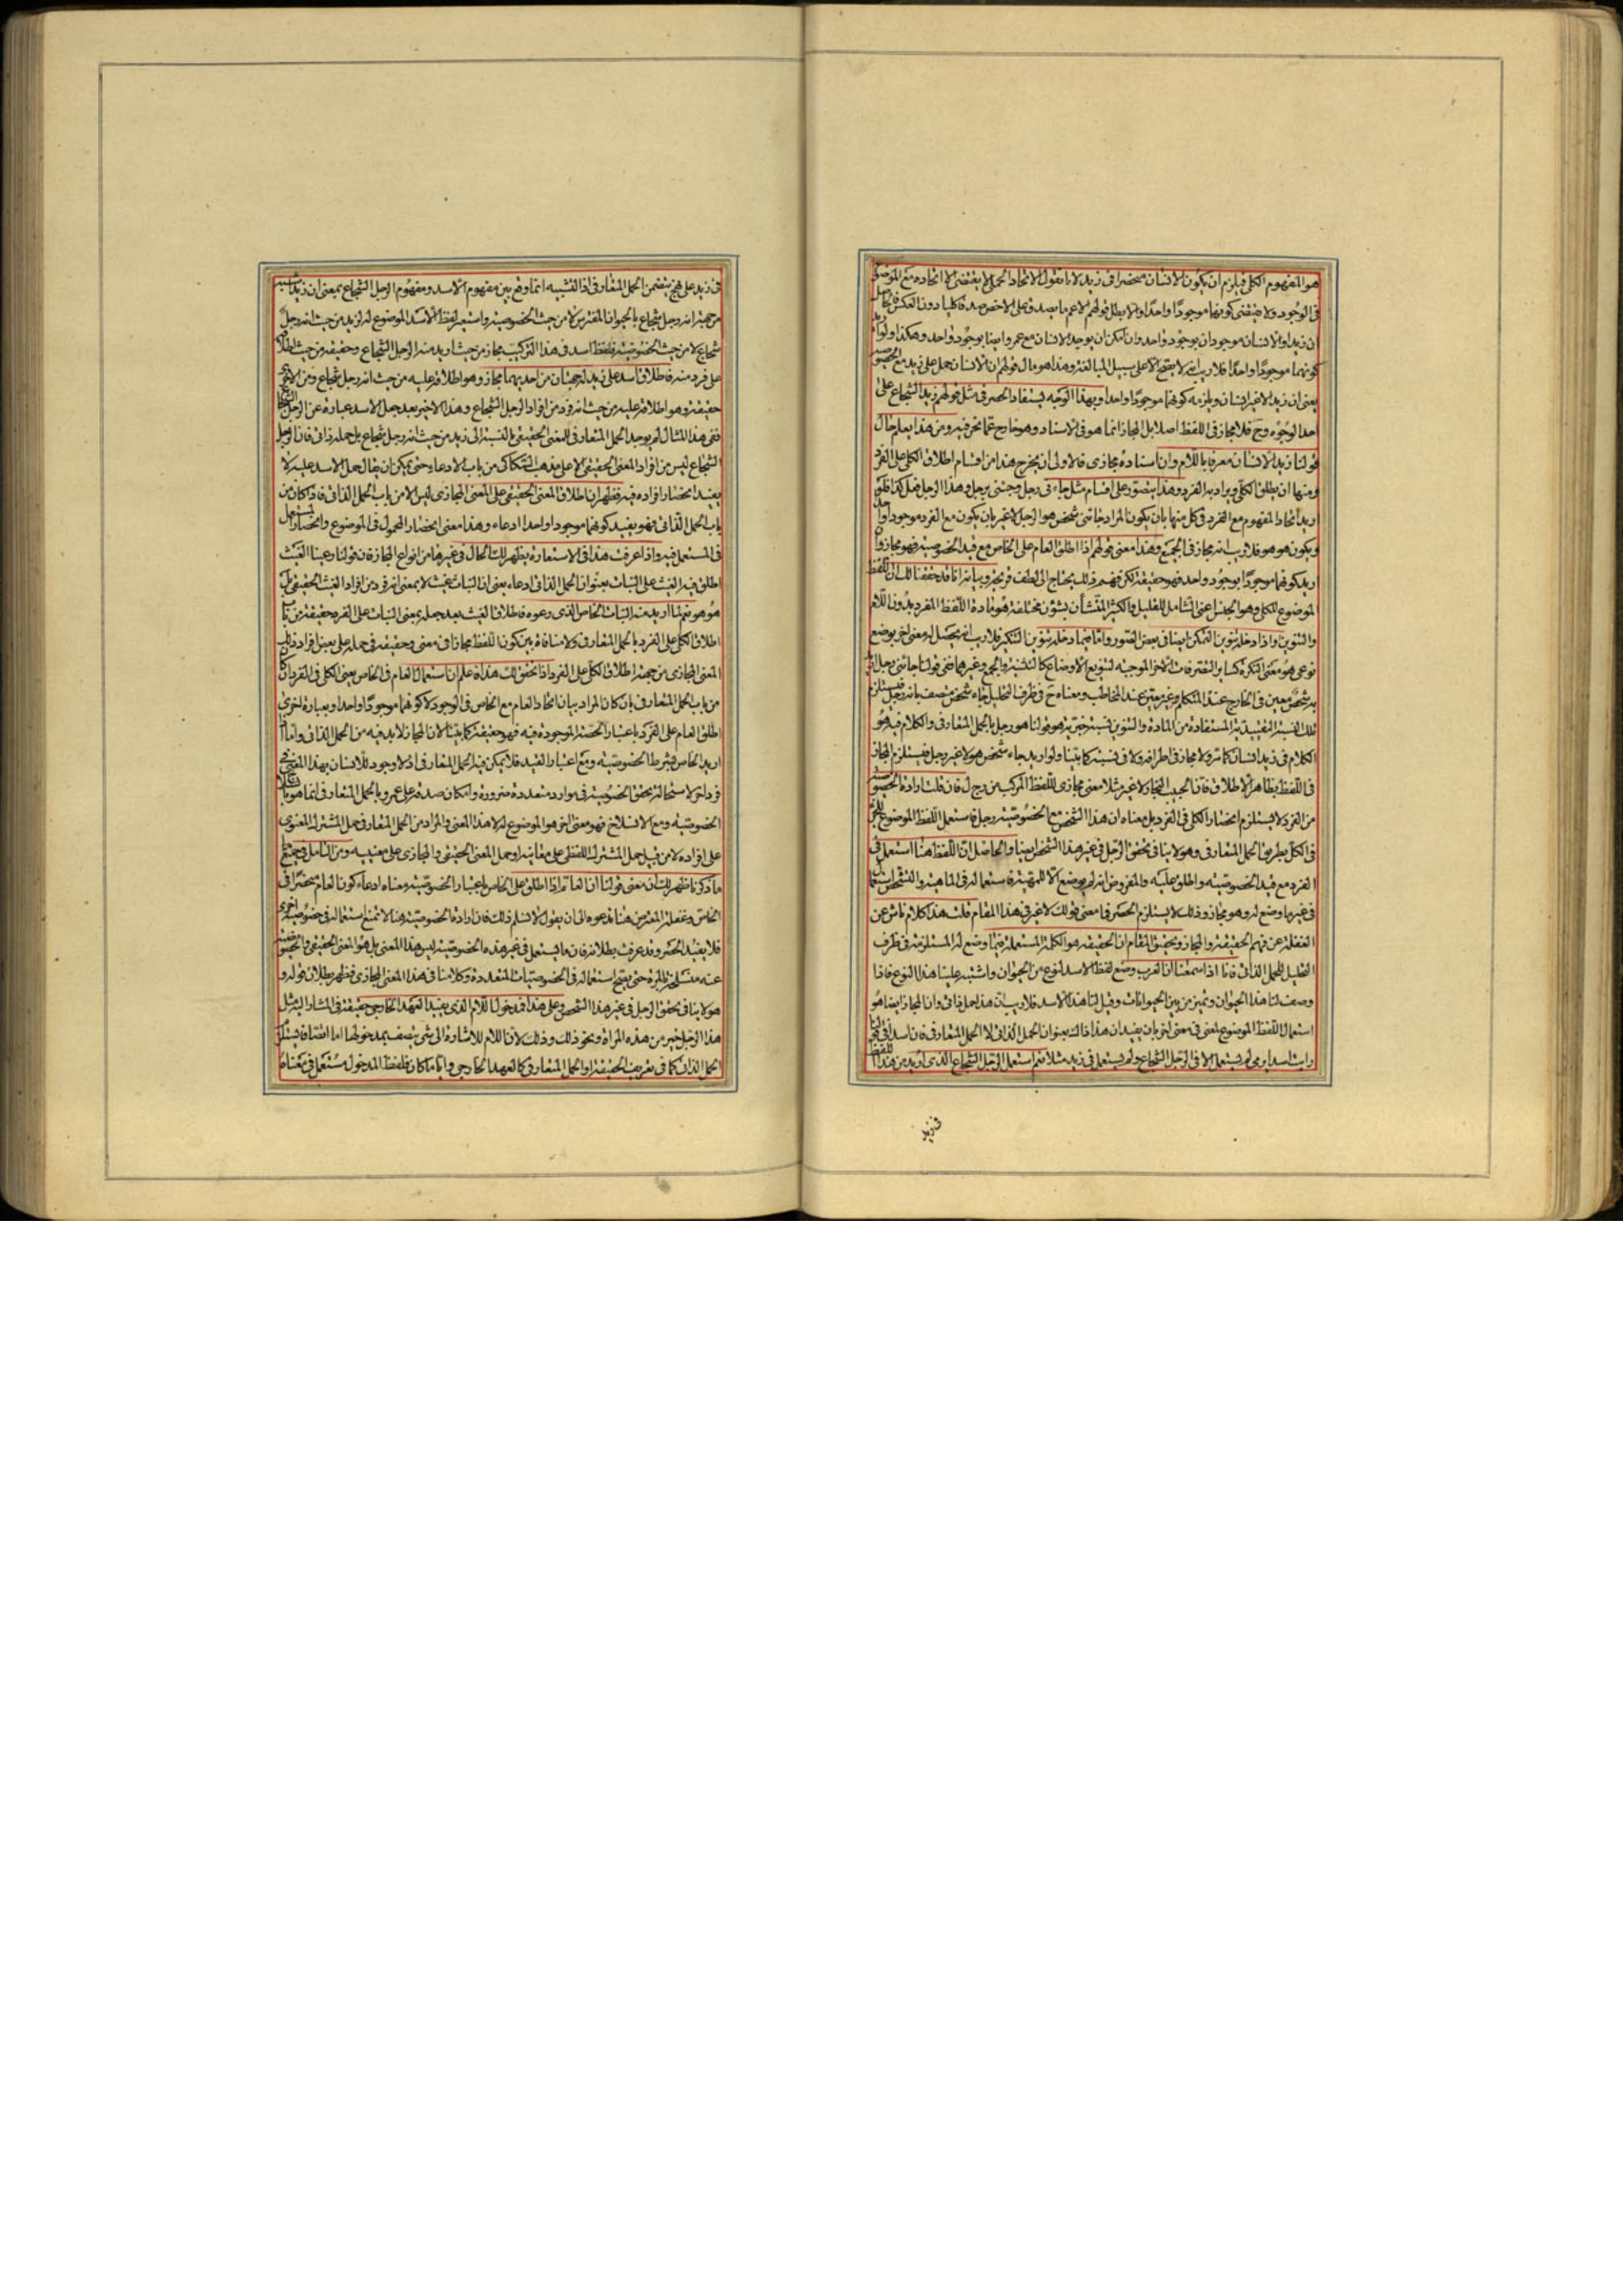 هو المفهوم الكلى فيلزم ان يكون الانسان منحصرا فى زيد لانا نقول الاتحاد الحملى لا يقتضى الا اتحاده مع الموضوع
فى الوجود ولا يقتضى كونهما موجودا واحدا والا لبطل قولهم الاعم ما يصدق على الاخص صدقا كليا دون العكس فالحاصل
ان زيدا والانسان موجودان بوجود واحد وان امكن ان يوجد الانسان مع عمرو ايضا بوجود واحد وهكذا ولو اريد
كونهما موجودا واحدا فلا ريب انه لا يصح الا على سبيل المبالغة وهذا هو مال قولهم ان الانسان حمل على زيد مع الخصوصية
يعنى ان زيدا لا غير انسان ويلزمه كونهما موجودا واحدا وبهذا الوجه يستفاد الحصر فى مثل قولهم زيد الشجاع على
احد الوجوه وح فلا مجاز فى اللفظ اصلا بل المجاز انما هو فى الاسناد وهو خارج عما نحن فيه ومن هذا يعلم حال
قولنا زيد الانسان معرفا باللام وان اسناده مجازى فالاولى ان يخرج هذا من اقسام اطلاق الكلى على الفرد
ومنها ان يطلق الكلى ويراد به الفرد وهذا يتصور على اقسام مثل جاء نى رجل وجئنى برجل وهذا الرجل فعل كذا فلو
اريد اتحاد المفهوم مع الفرد فى كل منها بان يكون المراد جائنى شخص هو الرجل لا غير بان يكون مع الفرد موجودا واحدا
ويكون هو هو فلا ريب انه مجاز فى الجميع وهذا معنى قولهم اذا اطلق العام على الخاص مع قيد الخصوصية فهو مجاز وان
اريد كونهما موجودا بوجود واحد فهو حقيقة لكن فهم ذلك يحتاج الى لطف قريحة وبيانه انا قد حققنا لك ان اللفظ
الموضوع للكلى وهو الجنس اعنى الشامل للقليل والكثير المتشأن بشؤن مختلفة هو مادة اللفظ المفرد بدون اللام
والتنوين واذا دخله تنوين التمكن ايضا فى بعض الصور واما فيما دخله تنوين التنكير فلا ريب انه يحصل له معنى اخر بوضع
نوعى هو معنى النكرة كسائر التصرفات الاخر الموجبة لتنويع الاوضاع كالتثنية والجمع وغيرهما فمعنى قولنا جائنى رجل اريد
به شخص معين فى الخارج عند المتكلم وغير معين عند المخاطب ومعناه ح فى ظرف التحليل جاء شخص متصف بانه رجل فيستلزم
تلك النسبة التقييدية المستفادة من المادة والتنوين نسبة خبرية هو قولنا هو رجل بالحمل المتعارفى والكلام فيه هو
الكلام فى زيد انسان كما مر ولا مجاز فى اطرافه ولا فى نسبته كما بينا ولو اريد جاء شخص هو لا غير رجل فيستلزم المجاز
فى اللفظ بظاهر الاطلاق فانا نجيب المجاز لا غير مثلا معنى مجازى للفظ المركب من رجل فان قلت ارادة الخصوصية
من الفرد لا يستلزم انحصار الكلى فى الفرد بل معناه ان هذا الشخص مع الخصوصية رجل فاستعمل اللفظ الموضوع للجزء
فى الكل بطريق الحمل المتعارفى وهو لا ينافى تحقق الرجل فى غير هذا الشخص ايضا والحاصل ان اللفظ هنا استعمل فى
الفرد مع قيد الخصوصية واطلق عليه والمفروض انه لم يوضع الا للمهية فاستعماله فى الماهية والتشخص استعمال
فى غير ما وضع له وهو مجاز وذلك لا يستلزم الحصر فما معنى قولك لا غير فى هذا المقام قلت هذا كلام ناش عن
الغفلة عن فهم الحقيقة والمجاز وتحقيق المقام ان الحقيقة هو الكلمة المستعملة فيما وضع له المستلزمة فى ظرف
التحليل للحمل الذاتى فانا اذا سمعنا ان العرب وضع لفظ الاسد لنوع من الحيوان واشتبه علينا هذا النوع فاذا
وصف لنا هذا الحيوان وتميز من بين الحيوانات وقيل لنا هذا الاسد فلا ريب ان هذا حمل ذاتى وان المجاز ايضا هو
استعمال اللفظ الموضوع لمعنى فى معنى اخر بان يفيد ان هذا ذاك بعنوان الحمل الذاتى لا الحمل المتعارفى فان اسدا فى قولنا
رايت اسدا يرمى لم يستعمل الا فى الرجل الشجاع ولم يستعمل فى زيد مثلا نعم استعمل الرجل الشجاع الذى اريد من هذا اللفظ
فى زيد
فى زيد على نهج يتضمن الحمل المتعارفى اذ التشبيه انما وقع بين مفهوم الاسد ومفهوم الرجل الشجاع بمعنى ان زيدا شبه
من جهة انه رجل شجاع بالحيوان المفترس لا من حيث الخصوصية واستعير لفظ الاسد الموضوع له لزيد من حيث انه رجل
شجاع لا من حيث الخصوصية فلفظ اسد فى هذا التركيب مجاز من حيث اريد منه الرجل الشجاع وحقيقة من حيث اطلاقه
على فرد منه فاطلاق اسد على زيد له جهتان من احديهما مجاز وهو اطلاقه عليه من حيث انه رجل شجاع ومن الاخرى
حقيقة وهو اطلاقه عليه من حيث انه فرد من افراد الرجل الشجاع وهذا الاخير بعد جعل الاسد عبارة عن الرجل الشجاع
ففى هذا المثال لم يوجد الحمل المتعارفى للمعنى الحقيقى بالنسبة الى زيد من حيث انه رجل شجاع بل حمله ذاتى فان الرجل
الشجاع ليس من افراد المعنى الحقيقى الا على مذهب السكاكى من باب الادعاء حتى يمكن ان يقال حمل الاسد عليه لا
يفيد انحصار افراده فيه فظهر ان اطلاق المعنى الحقيقى على المعنى المجازى ليس الا من باب الحمل الذاتى فاذا كان من
باب الحمل الذاتى فهو يفيد كونهما موجودا واحدا ادعاء وهذا معنى انحصار المحمول فى الموضوع وانحصار المستعمل
فى المستعمل فيه واذا عرفت هذا فى الاستعارة يظهر لك الحال فى غيرها من انواع المجاز فان قولنا رعينا الغيث
اطلق فيه الغيث على النبات بعنوان الحمل الذاتى ادعاء يعنى ان النبات غيث لا بمعنى انه فرد من افراد الغيث الحقيقى بل
هو هو نعم لما اريد منه النبات الخاص الذى رعوه فاطلاق الغيث بعد جعله بمعنى النبات على الفرد حقيقة من باب
اطلاق الكلى على الفرد بالحمل المتعارفى ولا منافاة بين كون اللفظ مجازا فى معنى وحقيقة فى حمله على بعض افراد ذلك
المعنى المجازى من جهة اطلاق الكلى على الفرد اذا تحقق لك هذا فاعلم ان استعمال العام فى الخاص يعنى الكلى فى الفرد ان كان
من باب الحمل المتعارفى بان كان المراد بيان اتحاد العام مع الخاص فى الوجود لا كونهما موجودا واحدا وبعبارة اخرى
اطلق العام على الفرد باعتبار الحصة الموجودة فيه فهو حقيقة كما بينا لان المجاز لا بد فيه من الحمل الذاتى واما اذا
اريد الخاص بشرط الخصوصية ومع اعتبار القيد فلا يمكن فيه الحمل المتعارفى اذ لا وجود للانسان بهذا المعنى فى
فرد اخر لاستحالة تحقق الخصوصية فى موارد متعددة ضرورة وامكان صدقه على عمرو بالحمل المتعارفى انما هو بالغاء
الخصوصية ومع الانسلاخ فهو معنى اخر هو الموضوع له لا هذا المعنى والمراد من الحمل المتعارفى حمل المشترك المعنوى
على افراده لا من قبيل حمل المشترك اللفظى على معانيه او حمل المعنى الحقيقى والمجازى على معنييه ومن التامل فى جميع
ما ذكرنا ظهر لك ان معنى قولنا ان العام اذا اطلق على الخاص باعتبار الخصوصية معناه ادعاء كون العام منحصرا فى
الخاص وغفلة المعترض هنا تدعوه الى ان يقول لا نسلم ذلك فان ارادة الخصوصية هنا لا تمنع استعماله فى خصوصية اخرى
فلا يفيد الحصر وقد عرفت بطلانه فان ما يستعمل فى غير هذه الخصوصية ليس هذا المعنى بل هو المعنى الحقيقى والخصوصية
عنه منسلخة بالمرة حتى يصح استعماله فى الخصوصيات المتعددة وكلامنا فى هذا المعنى المجازى فظهر بطلان قوله و
هو لا ينافى تحقق الرجل فى غير هذا الشخص وعلى هذا فمدخول اللام الذى يفيد العهد الخارجى حقيقة فى المشار اليه مثل
هذا الرجل خير من هذه المراة ونحو ذلك وذلك لان اللام للاشارة الى شى يتصف بمدخولها اما اتصافا يستلزم
الحمل الذاتى كما فى تعريف الحقيقة او الحمل المتعارفى كالعهد الخارجى وايا ما كان فلفظ المدخول مستعمل فى معناه